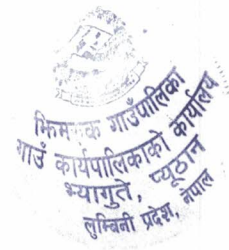 गाउँपालिका
गाउँ कार्यपालिकाको कार्यालय
भ्यागुते, प्यूठान
लुम्बिनी प्रदेश, नेपाल